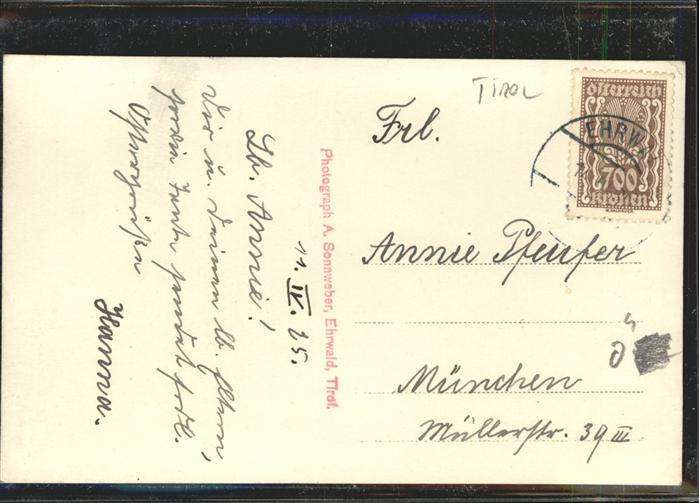 11. IV. 25.
Lb. Annie!
Dir u. Deinen lb. Eltern,
sowie Tante sendet frdl.
Ostergrüßen
Hanna.
Photograph A. Sonnweber, Ehrwald, Tirol.
TIROL
Österreich
700
Kronen
EHRW
Frl.
Annie Pfeufer
München
Müllerstr. 39 III